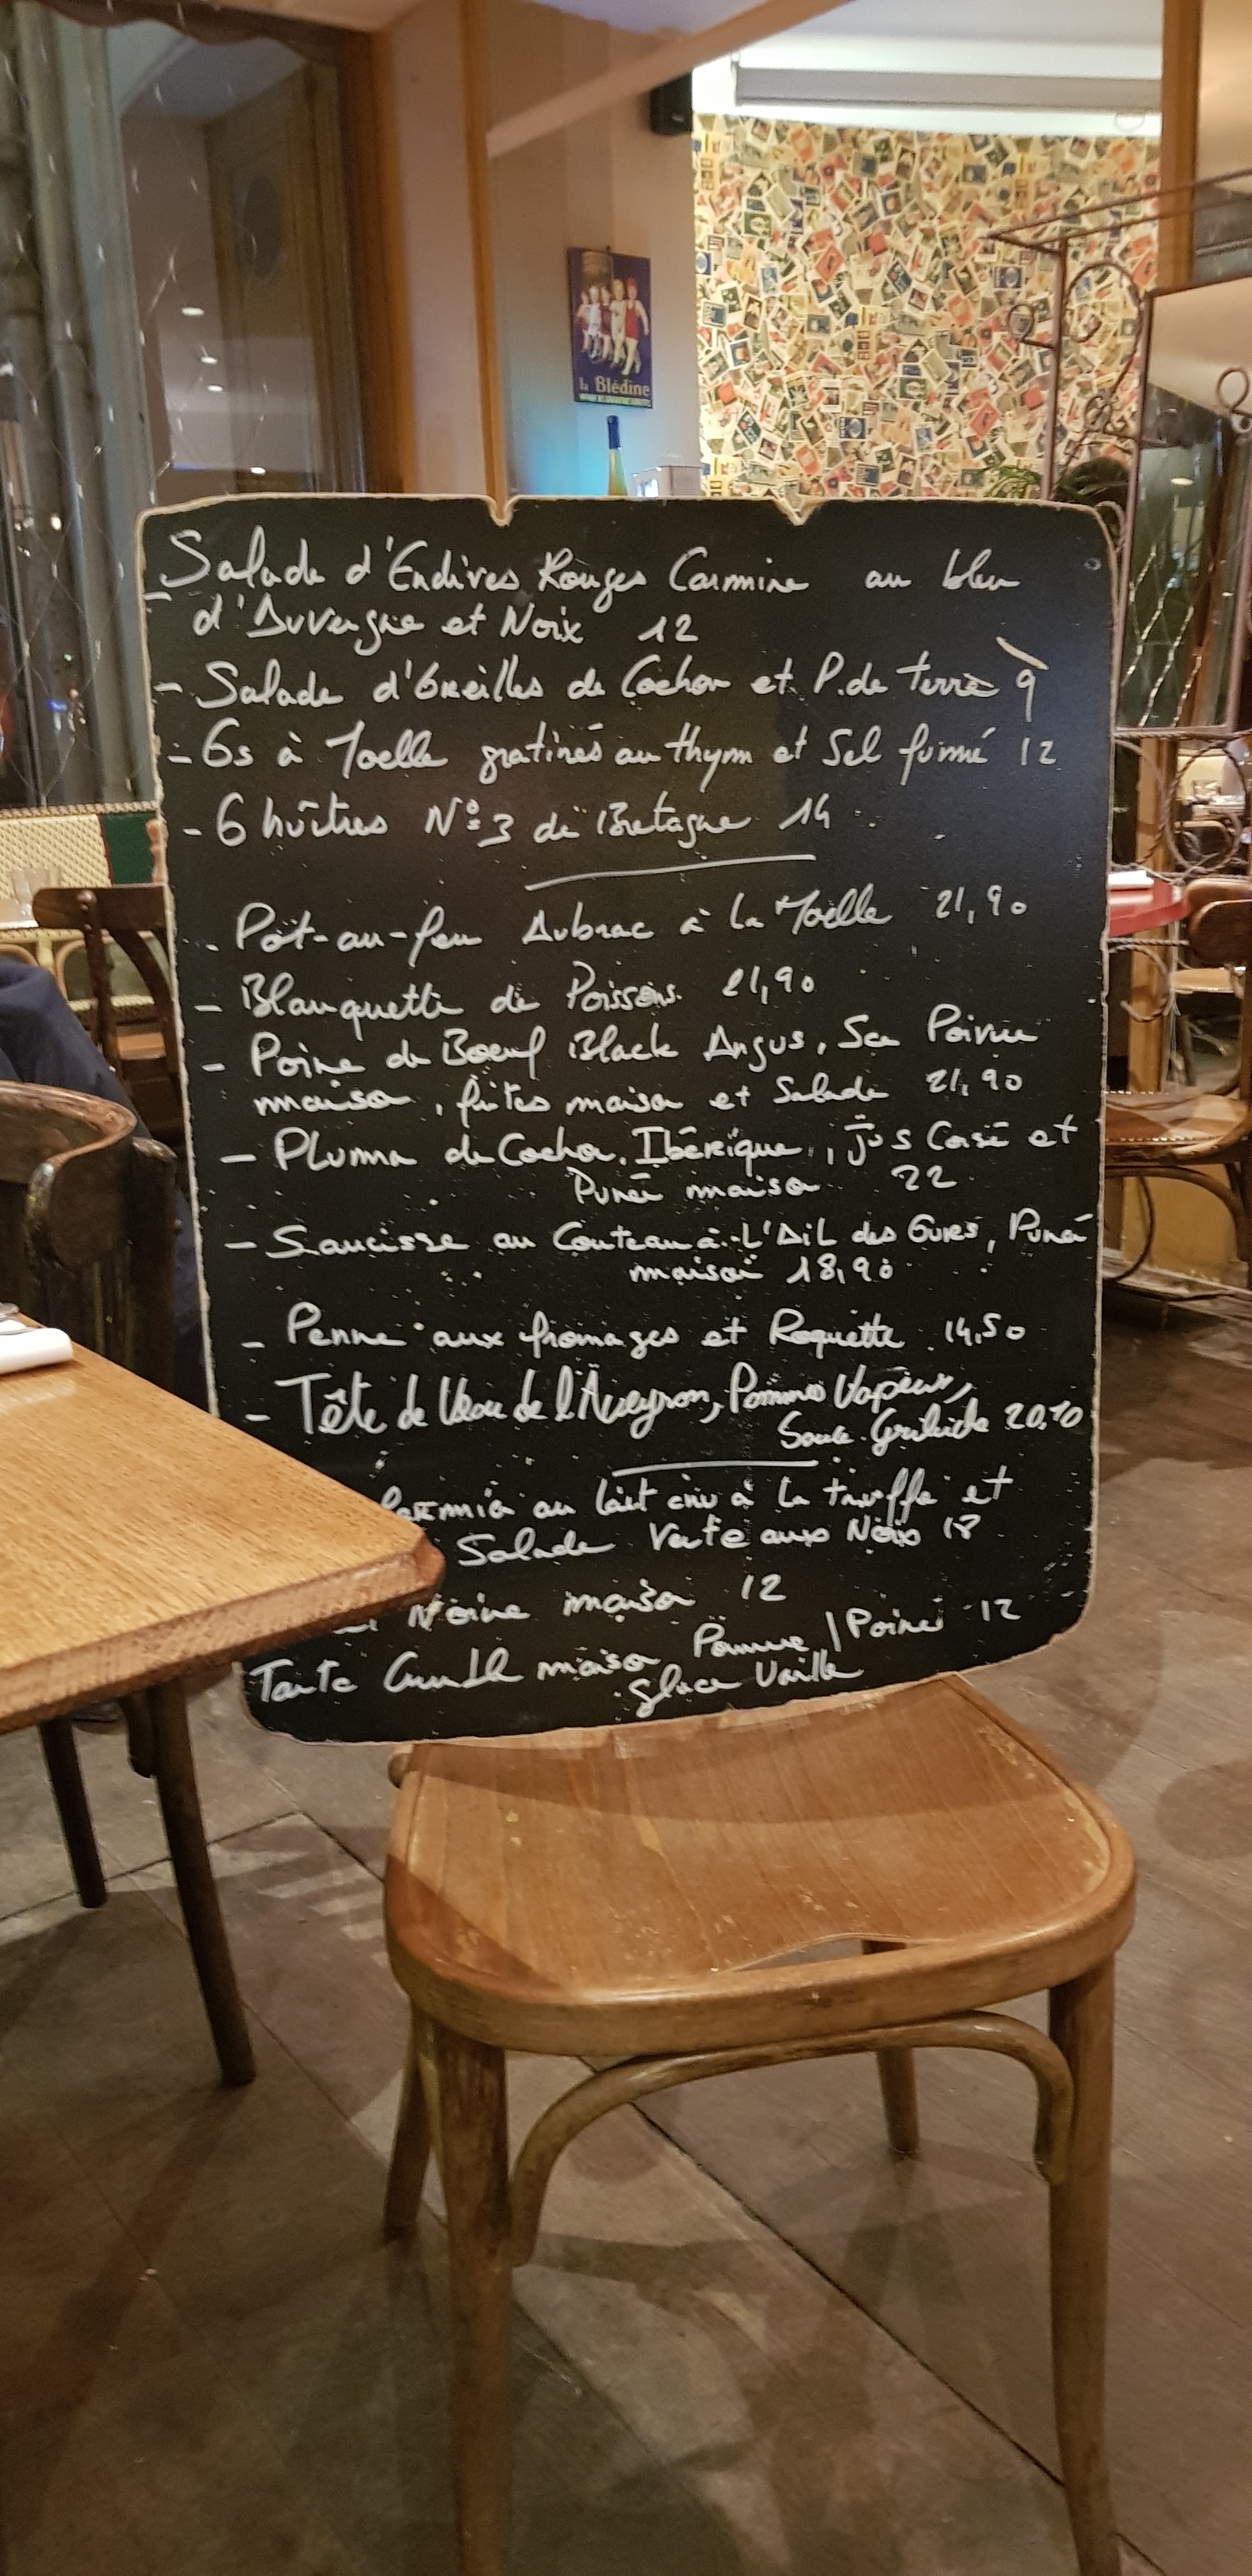 la Blédine
Salade d'Endives Rouges Carmine au bleu
d'Auvergne et Noix 12
- Salade d'Oreilles de Cochon et P. de terre 9
- Os à Moelle gratinés au thym et Sel fumé 12
- 6 huîtres N°3 de Bretagne 14
- Pot-au-feu Aubrac à la Moëlle 21,90
- Blanquette de Poissons 21,90
- Poire de Boeuf Black Angus, Sce Poivre
maison, frites maison et Salade 21,90
- Pluma de Cochon Ibérique, jus Corsé et
Purée maison 22
- Saucisse au Couteau à L'AiL des Ours, Purée
maison 18,90
- Penne aux fromages et Roquette 14,50
- Tête de Veau de l'Aveyron, Pommes Vapeur,
Sauce Gribiche
au lait cru à la truffe et
Salade Verte aux Noix 18
maison 12
Tarte maison Pomme / Poire 12
glace Vanille